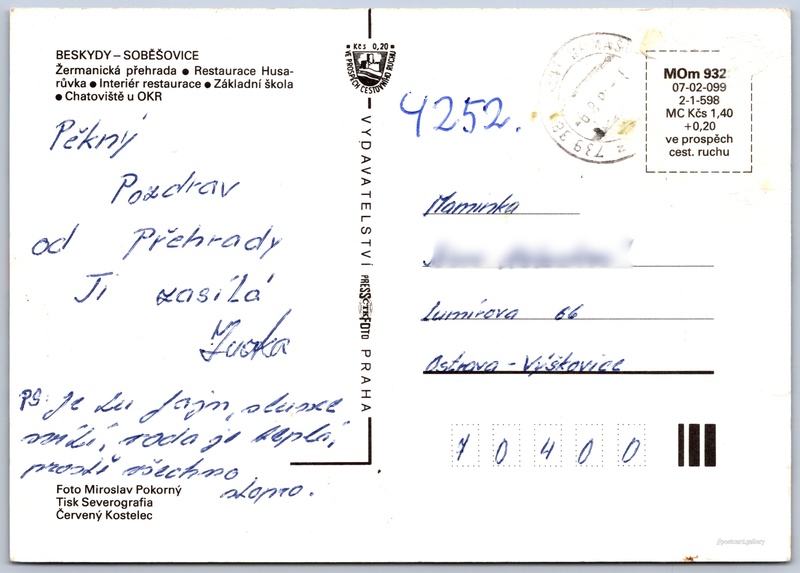 BESKYDY – SOBĚŠOVICE
Žermanická přehrada ● Restaurace Husa-
růvka ● Interiér restaurace ● Základní škola
● Chatoviště u OKR
Pěkný
Pozdrav
od Přehrady
Ti zasílá
PS: Je tu fajn, slunce
svítí, voda je teplá,
prostě všechno
Foto Miroslav Pokorný
Tisk Severografia
Červený Kostelec
Kčs 0,20
VE PROSPĚCH CESTOVNÍHO RUCHU
VYDAVATELSTVÍ PRESSFOTO PRAHA
4252.
739 38
MOm 932
07-02-099
2-1-598
MC Kčs 1,40
+0,20
ve prospěch
cest. ruchu
Maminka
Lumírova 66
Ostrava - Výškovice
70400